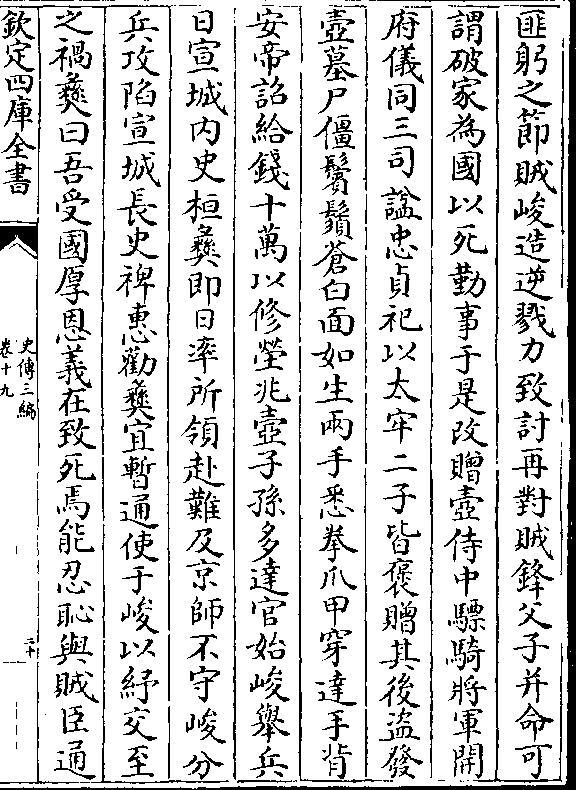 匪躬之節賊峻造逆戮力致討再對賊鋒父子并命可
謂破家為國以死勤事于是改贈壼侍中驃騎將軍開
府儀同三司諡忠貞祀以太牢二子皆褒贈其後盜發
壼墓尸僵鬢鬚蒼白面如生兩手悉拳爪甲穿達手背
安帝詔給錢十萬以修塋兆壼子孫多達官始峻舉兵
日宣城內史桓彝即日率所領赴難及京師不守峻分
兵攻陷宣城長史裨惠勸彝宜暫通使于峻以紓交至
之禍彝曰吾受國厚恩義在致死焉能忍恥與賊臣通
欽定四庫全書
史傳三編
卷十九
二十